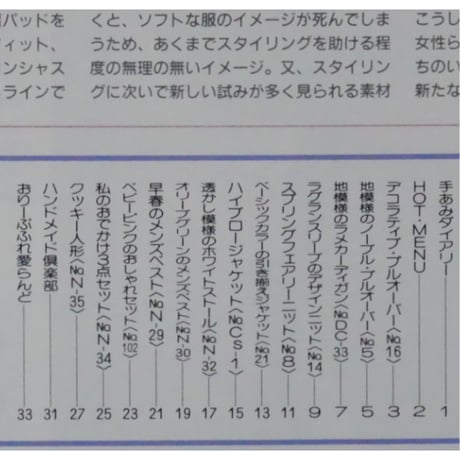 パッドを
フィット、
コンシャス
ラインで
くと、ソフトな服のイメージが死んでしま
うため、あくまでスタイリングを助ける程
度の無理の無いイメージ。又、スタイリン
グに次いで新しい試みが多く見られる素材
こうし
女性ら
ちのい
新たな
手あみダイアリー 1
HOT・MENU 2
デコラティブ・プルオーバー〈No16〉 3
地模様のノーブル・プルオーバー〈No5〉 5
地模様のラメカーディガン〈NoDC-33〉 7
ラグランスリーブのデザインニット〈No14〉 9
スプリングフェアリーニット〈No8〉 11
ベーシックカラーの引き揃えジャケット〈No21〉 13
ハイブロージャケット〈NoCs-1〉 15
透かし模様のホワイトストール〈NoN-32〉 17
オリーブグリーンのメンズベスト〈NoN-30〉 19
早春のメンズベスト〈NoN-29〉 21
ベビーピンクのおしゃれセット〈No102〉 23
私のおでかけ3点セット〈NoN-34〉 25
クッキー人形〈NoN-35〉 27
ハンドメイド倶楽部 31
おりーぶふれ愛らんど 33